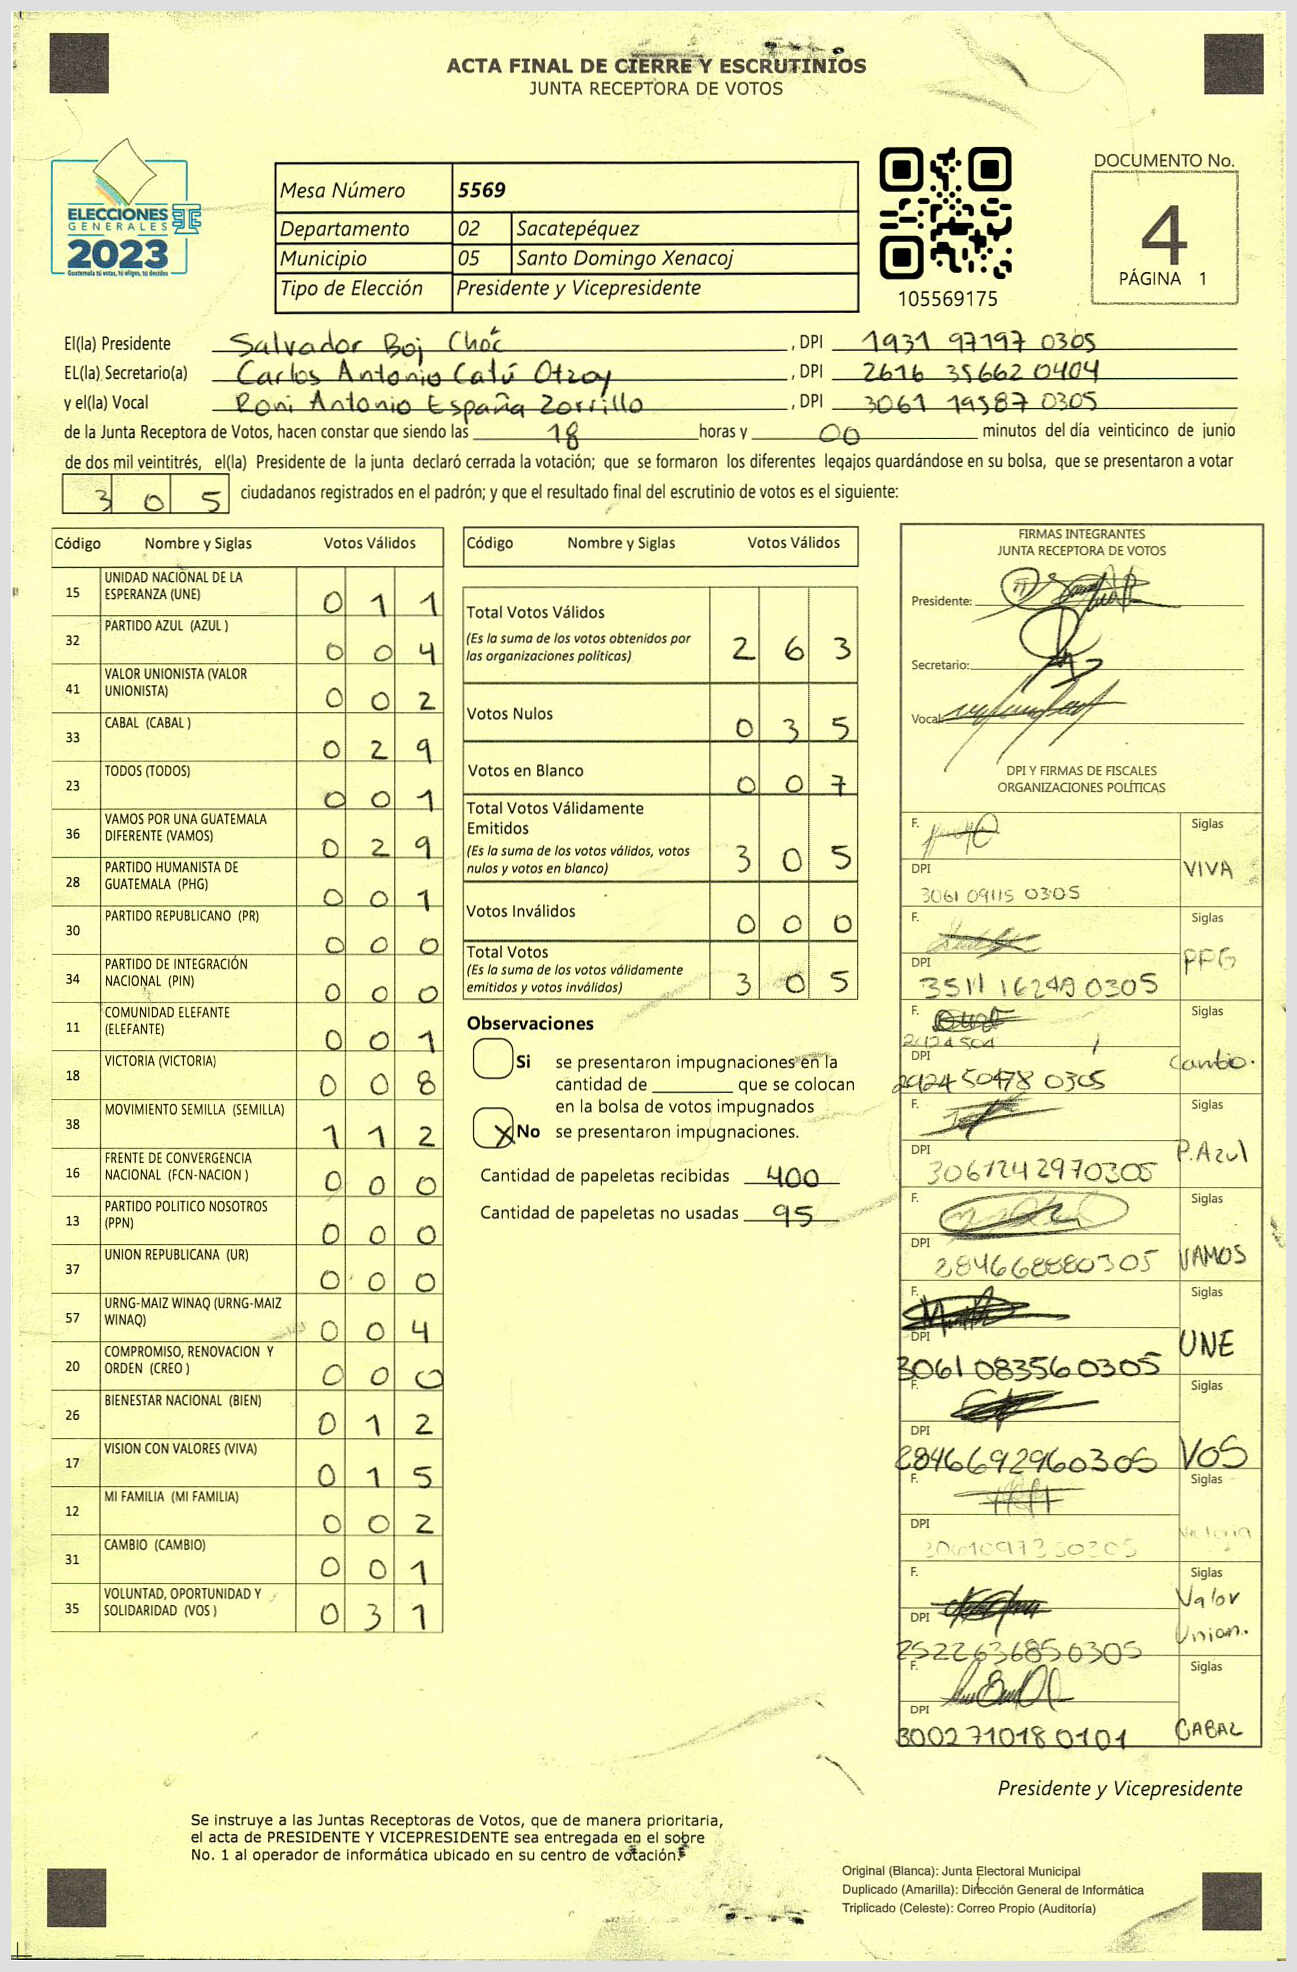 ACTA FINAL DE CIERRE Y ESCRUTINIOS
JUNTA RECEPTORA DE VOTOS
ELECCIONES
GENERALES
2023
Guatemala tú votas, tú eliges, tú decides
Mesa Número 5569
Departamento 02 Sacatepéquez
Municipio 05 Santo Domingo Xenacoj
Tipo de Elección Presidente y Vicepresidente
105569175
DOCUMENTO No.
4
PÁGINA 1
El(la) Presidente Salvador Boj Choc , DPI 1931 97197 0305
EL(la) Secretario(a) Carlos Antonio Catú Otzoy , DPI 2616 35662 0404
y el(la) Vocal Roni Antonio España Zorrillo , DPI 3061 19587 0305
de la Junta Receptora de Votos, hacen constar que siendo las 18 horas y 00 minutos del día veinticinco de junio
de dos mil veintitrés, el(la) Presidente de la junta declaró cerrada la votación; que se formaron los diferentes legajos guardándose en su bolsa, que se presentaron a votar
305 ciudadanos registrados en el padrón; y que el resultado final del escrutinio de votos es el siguiente:
Código Nombre y Siglas Votos Válidos
15 UNIDAD NACIONAL DE LA
ESPERANZA (UNE) 011
32 PARTIDO AZUL (AZUL ) 004
41 VALOR UNIONISTA (VALOR
UNIONISTA) 002
33 CABAL (CABAL ) 029
23 TODOS (TODOS) 001
36 VAMOS POR UNA GUATEMALA
DIFERENTE (VAMOS) 029
28 PARTIDO HUMANISTA DE
GUATEMALA (PHG) 001
30 PARTIDO REPUBLICANO (PR) 000
34 PARTIDO DE INTEGRACIÓN
NACIONAL (PIN) 000
11 COMUNIDAD ELEFANTE
(ELEFANTE) 001
18 VICTORIA (VICTORIA) 008
38 MOVIMIENTO SEMILLA (SEMILLA) 112
16 FRENTE DE CONVERGENCIA
NACIONAL (FCN-NACION ) 000
13 PARTIDO POLITICO NOSOTROS
(PPN) 000
37 UNION REPUBLICANA (UR) 000
57 URNG-MAIZ WINAQ (URNG-MAIZ
WINAQ) 004
20 COMPROMISO, RENOVACION Y
ORDEN (CREO ) 000
26 BIENESTAR NACIONAL (BIEN) 012
17 VISION CON VALORES (VIVA) 015
12 MI FAMILIA (MI FAMILIA) 002
31 CAMBIO (CAMBIO) 001
35 VOLUNTAD, OPORTUNIDAD Y
SOLIDARIDAD (VOS ) 031
Código Nombre y Siglas Votos Válidos
Total Votos Válidos
(Es la suma de los votos obtenidos por
las organizaciones políticas) 263
Votos Nulos 035
Votos en Blanco 007
Total Votos Válidamente
Emitidos
(Es la suma de los votos válidos, votos
nulos y votos en blanco) 305
Votos Inválidos 000
Total Votos
(Es la suma de los votos válidamente
emitidos y votos inválidos) 305
Observaciones
Si se presentaron impugnaciones en la
cantidad de ________ que se colocan
en la bolsa de votos impugnados
X No se presentaron impugnaciones.
Cantidad de papeletas recibidas 400
Cantidad de papeletas no usadas 95
FIRMAS INTEGRANTES
JUNTA RECEPTORA DE VOTOS
Presidente:
Secretario:
Vocal:
DPI Y FIRMAS DE FISCALES
ORGANIZACIONES POLÍTICAS
F. Siglas
DPI VIVA
3061 09115 0305
F. Siglas
DPI PPG
3511 16240 0305
F. Siglas
DPI Cambio.
2424 50478 0305
F. Siglas
DPI P.Azul
3061242970305
F. Siglas
DPI VAMOS
2846668880305
F. Siglas
DPI UNE
3061083560305
F. Siglas
DPI VOS
2846692960305
F. Siglas
DPI Victoria
3061097350305
F. Siglas
DPI Valor
Union.
2522636850305
F. Siglas
DPI CABAL
3002710180101
Presidente y Vicepresidente
Se instruye a las Juntas Receptoras de Votos, que de manera prioritaria,
el acta de PRESIDENTE Y VICEPRESIDENTE sea entregada en el sobre
No. 1 al operador de informática ubicado en su centro de votación.
Original (Blanca): Junta Electoral Municipal
Duplicado (Amarilla): Dirección General de Informática
Triplicado (Celeste): Correo Propio (Auditoría)